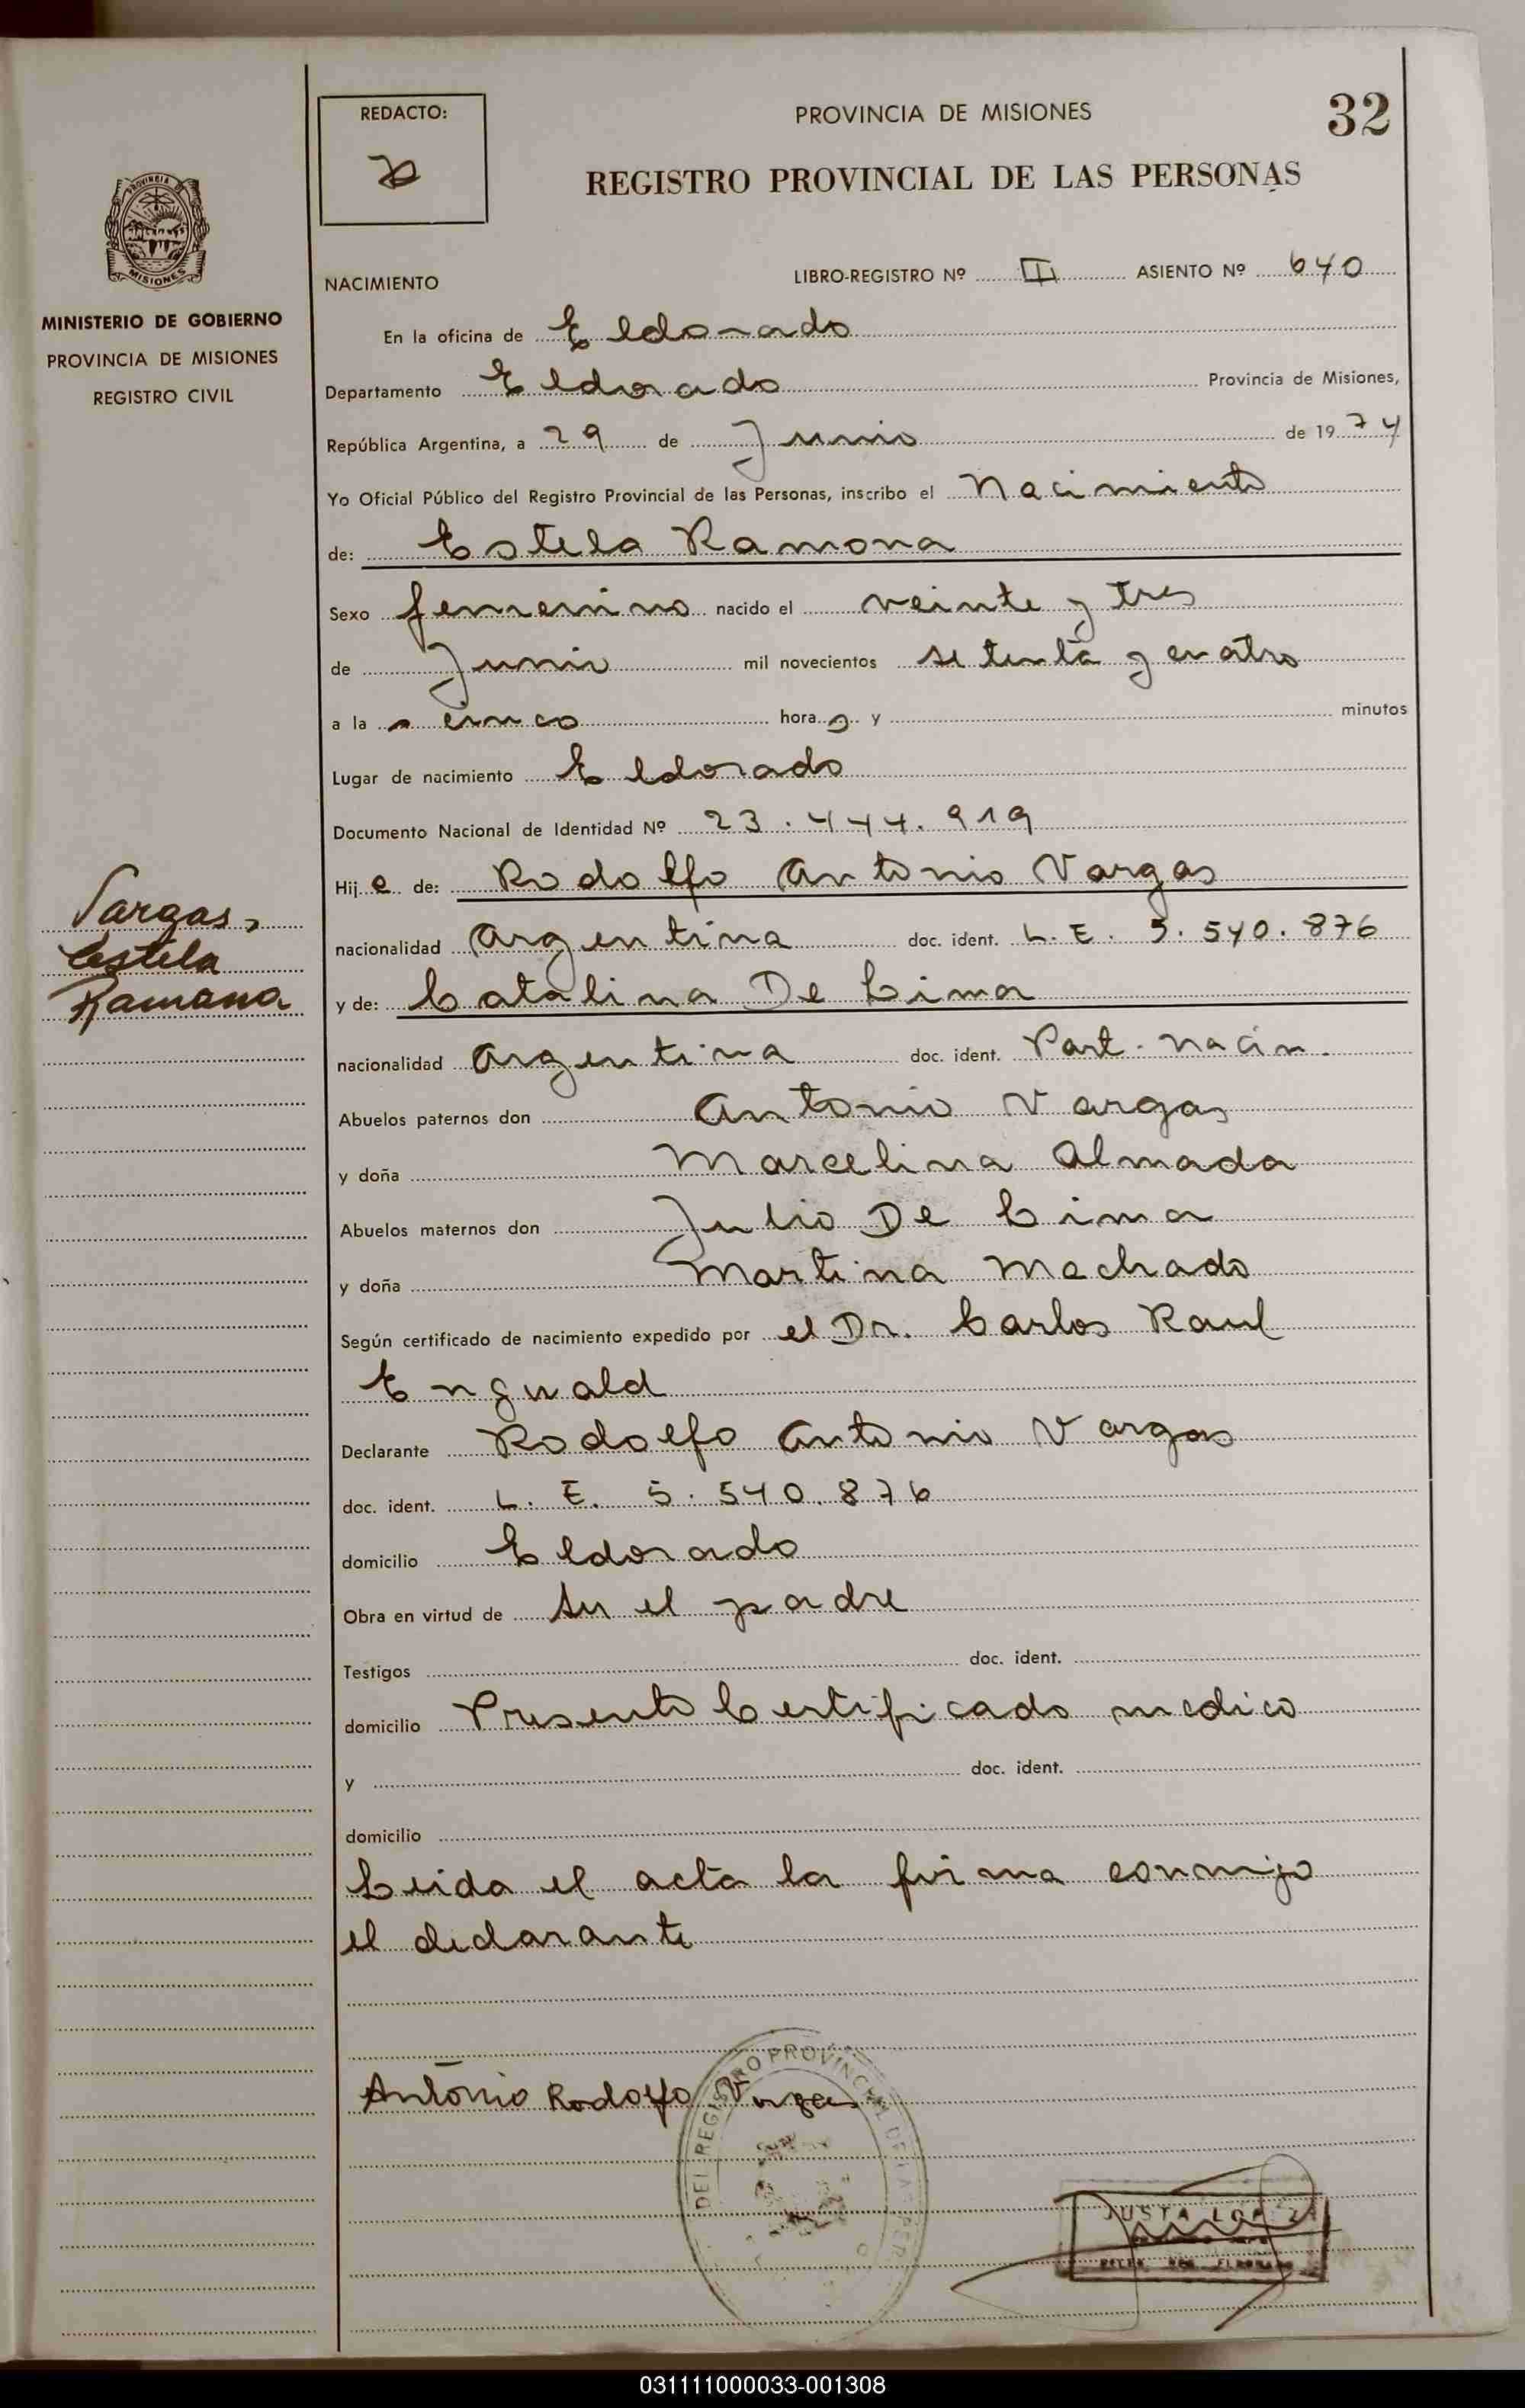 REDACTO:
PROVINCIA DE MISIONES
32
REGISTRO PROVINCIAL DE LAS PERSONAS
PROVINCIA DE
MISIONES
MINISTERIO DE GOBIERNO
PROVINCIA DE MISIONES
REGISTRO CIVIL
NACIMIENTO LIBRO-REGISTRO Nº II ASIENTO Nº 640
En la oficina de Eldorado
Departamento Eldorado Provincia de Misiones,
República Argentina, a 29 de Junio de 1974
Yo Oficial Público del Registro Provincial de las Personas, inscribo el Nacimiento
de: Estela Ramona
Sexo femenino nacido el veinte y tres
de Junio mil novecientos setenta y cuatro
a las cinco horas y minutos
Lugar de nacimiento Eldorado
Documento Nacional de Identidad Nº 23.444.919
Hija de: Rodolfo Antonio Vargas
nacionalidad Argentina doc. ident. L.E. 5.540.876
y de: Catalina De Lima
nacionalidad Argentina doc. ident. Part. Nacim.
Vargas,
Estela
Ramona
Abuelos paternos don Antonio Vargas
y doña Marcelina Almada
Abuelos maternos don Julio De Lima
y doña Martina Machado
Según certificado de nacimiento expedido por el Dr. Carlos Raul
Engwald
Declarante Rodolfo Antonio Vargas
doc. ident. L.E. 5.540.876
domicilio Eldorado
Obra en virtud de ser el padre
Testigos doc. ident.
domicilio Presento Certificado medico
y doc. ident.
domicilio
Leida el acta la firma conmigo
el declarante
Antonio Rodolfo Vargas
DEL REGISTRO PROVINCIAL DE LAS PER
JUSTA LOPEZ
031111000033-001308